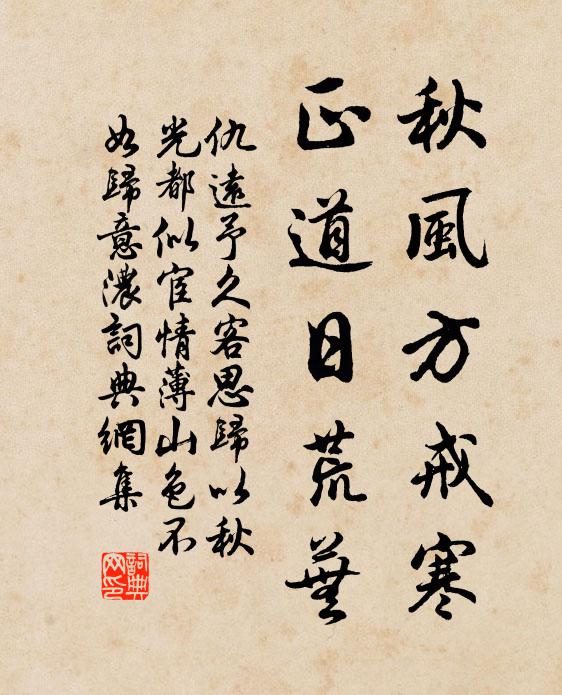 秋風方戒寒
正道日荒蕪
仇遠予久客思歸以秋
光都似宦情薄山色不
如歸意濃詞典網集
詞典
网印